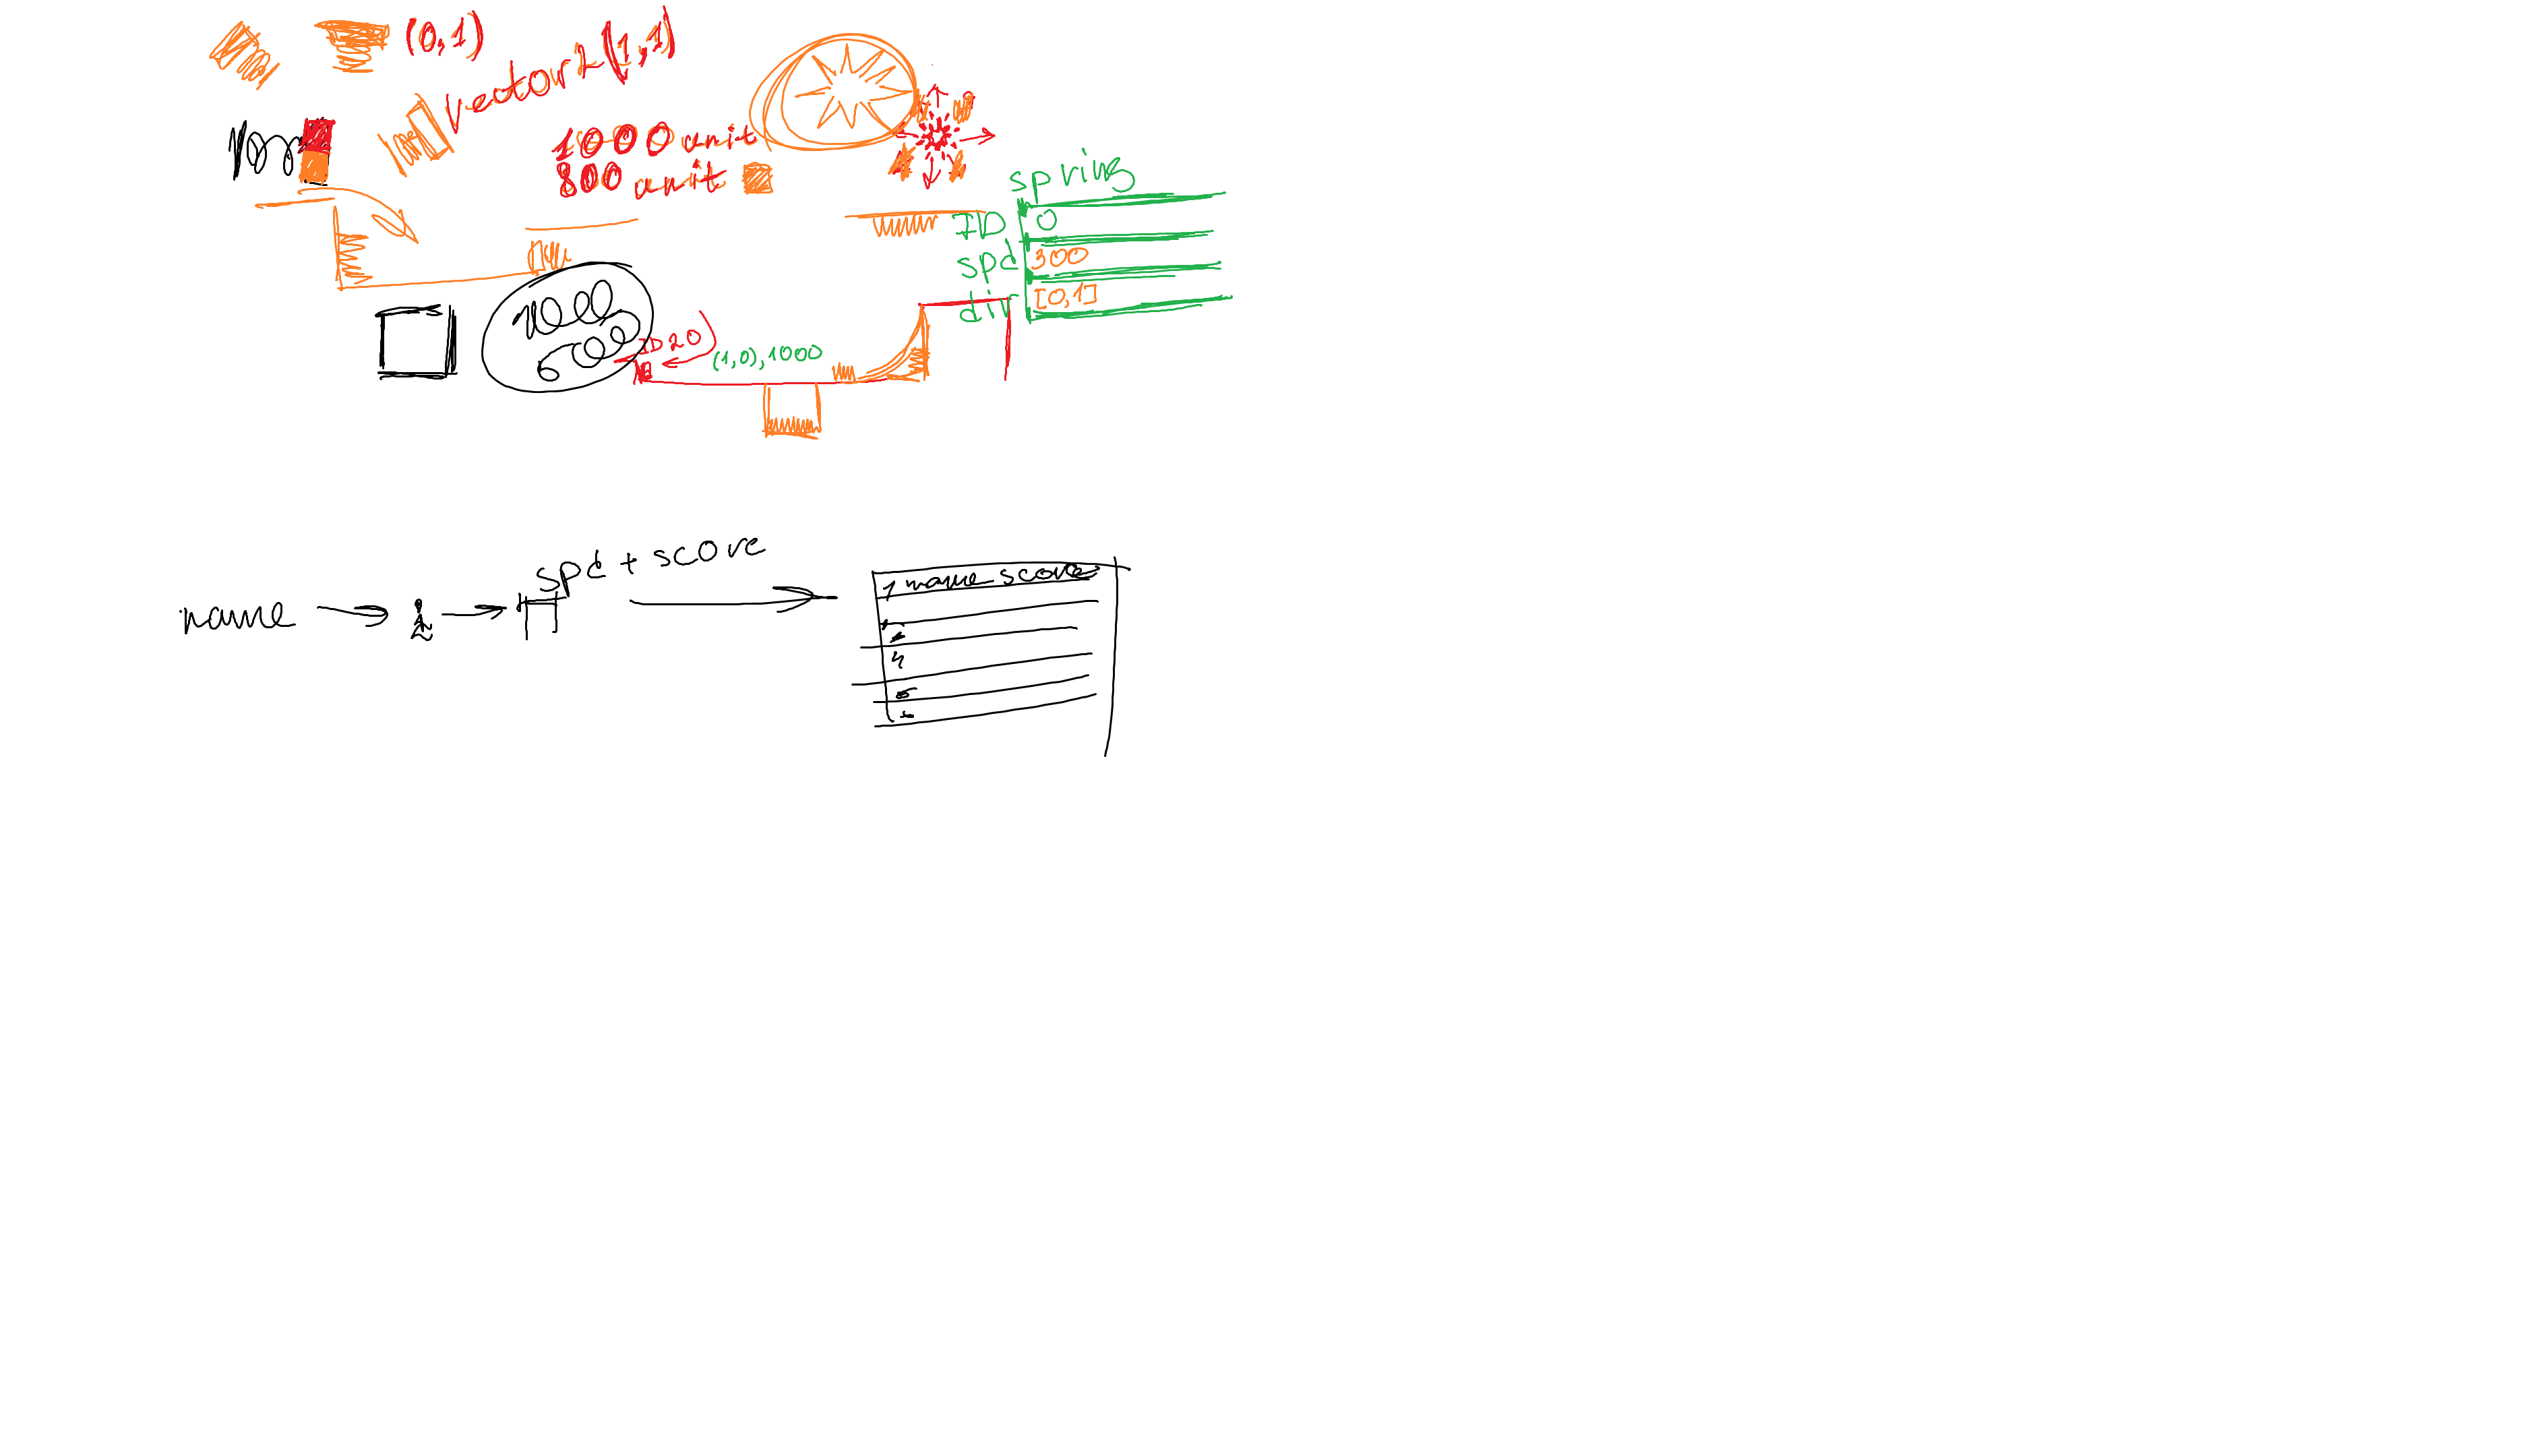 (0,1)
Vector2(1,1)
1000 unit
800 unit
spring
ID 0
spd 300
dir [0,1]
ID 20
(1,0),1000
spd + score
name
1 name score
4
5